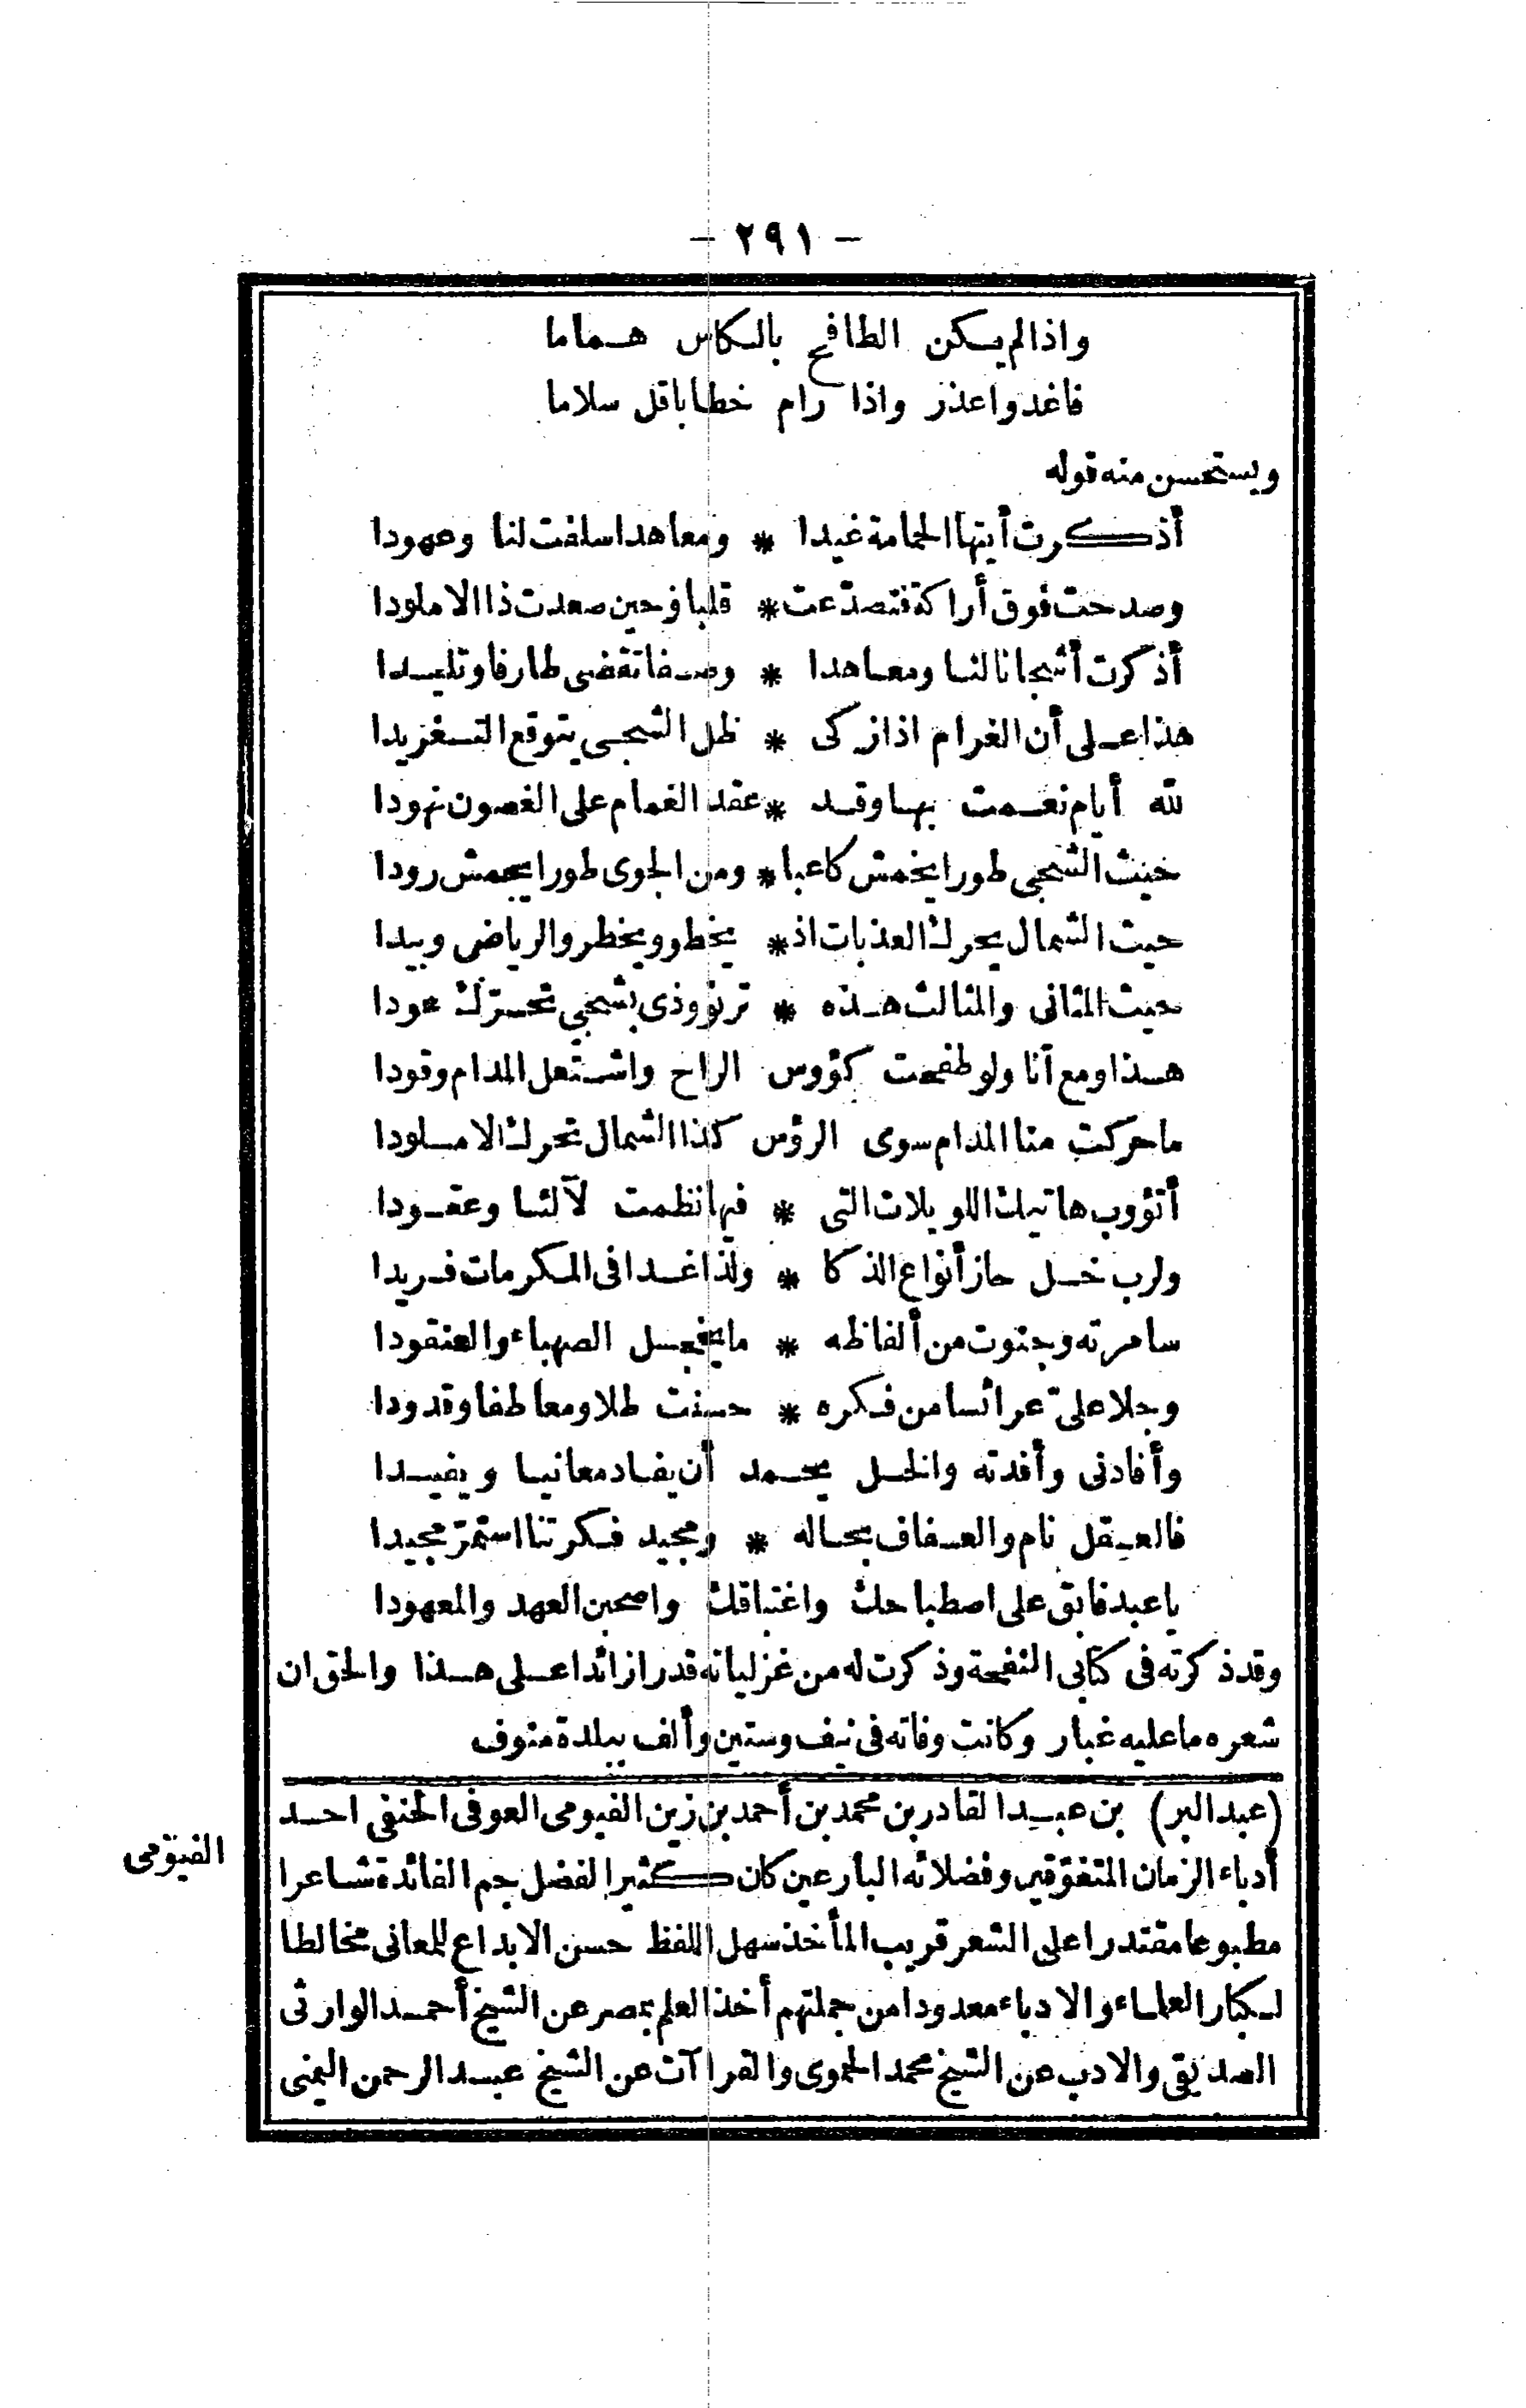 - ٢٩١ -
واذا لم يكن الطافح بالكاس هماما
فاغد واعذر واذا رام خطابا قل سلاما
ويستحسن منه قوله
أذكرت أيتها الحمامة غيدا * ومعاهدا سلفت لنا وعهودا
وصدحت فوق أراكة فتصدّعت * قلبا فى حين صعدت ذا الاملودا
أذكرت أشجانا لنا ومعاهدا * وصفا تقضى طارفا وتليدا
هذا على أن الغرام اذا زكى * ظل الشجى يتوقع التغريدا
لله أيام نعمت بها وقد * عقد الغمام على الغصون نهودا
خنث الشجى طورا يخمش كاعبا * ومن الجوى طورا يجمش رودا
حيت الشمال يحرك العذبات اذ * يخطو ويخطر والرياض وبيدا
حيث المثانى والمثالث هذه * ترنو وذى بشجى تحرّك عودا
هذا ومع آنا ولو طفحت كؤوس الراح واشتعل المدام وقودا
ما حركت منا المدام سوى الرؤس كذا الشمال تحرك الاملودا
أتؤوب هاتيك اللويلات التى * فيها نظمت لآلئا وعقودا
ولرب خل حاز أنواع الذكا * ولذا غدا فى المكرمات فريدا
سامرته وجنوت من ألفاظه * ما يخجل الصهباء والعنقودا
وجلا علىّ عرائسا من فكره * حسنت طلا ومعاطفا وقدودا
وأفادنى وأفدته والخل يحمد أن يفاد معانيا ويفيدا
فالعقل نام والعفاف بحاله * ومجيد فكرتنا استمرّ مجيدا
يا عبد فابق على اصطباحك واغتباقك واصحبن العهد والمعهودا
وقد ذكرته فى كتابى النفحة وذكرت له من غزلياته قدرا زائدا على هذا والحق ان
شعره ما عليه غبار وكانت وفاته فى نيف وستين وألف ببلدة منوف
(عبد البر) بن عبد القادر بن محمد بن أحمد بن زين الفيومى العوفى الحنفى احد
الفيّومى
أدباء الزمان المتفوّقين وفضلائه البارعين كان كثير الفضل جم الفائدة شاعرا
مطبوعا مقتدرا على الشعر قريب المأخذ سهل اللفظ حسن الابداع للمعانى مخالطا
لكبار العلماء والادباء معدودا من جملتهم أخذ العلم بمصر عن الشيخ أحمد الوارثى
الصديقى والادب عن الشيخ محمد الحموى والقراآت عن الشيخ عبد الرحمن اليمنى